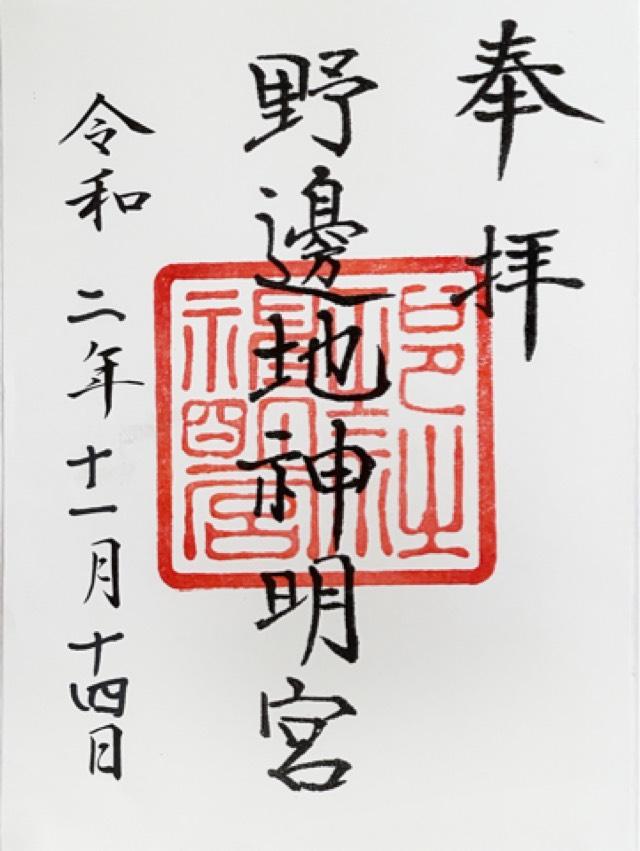 奉拝
野邊地神明宮
令和二年十一月十四日